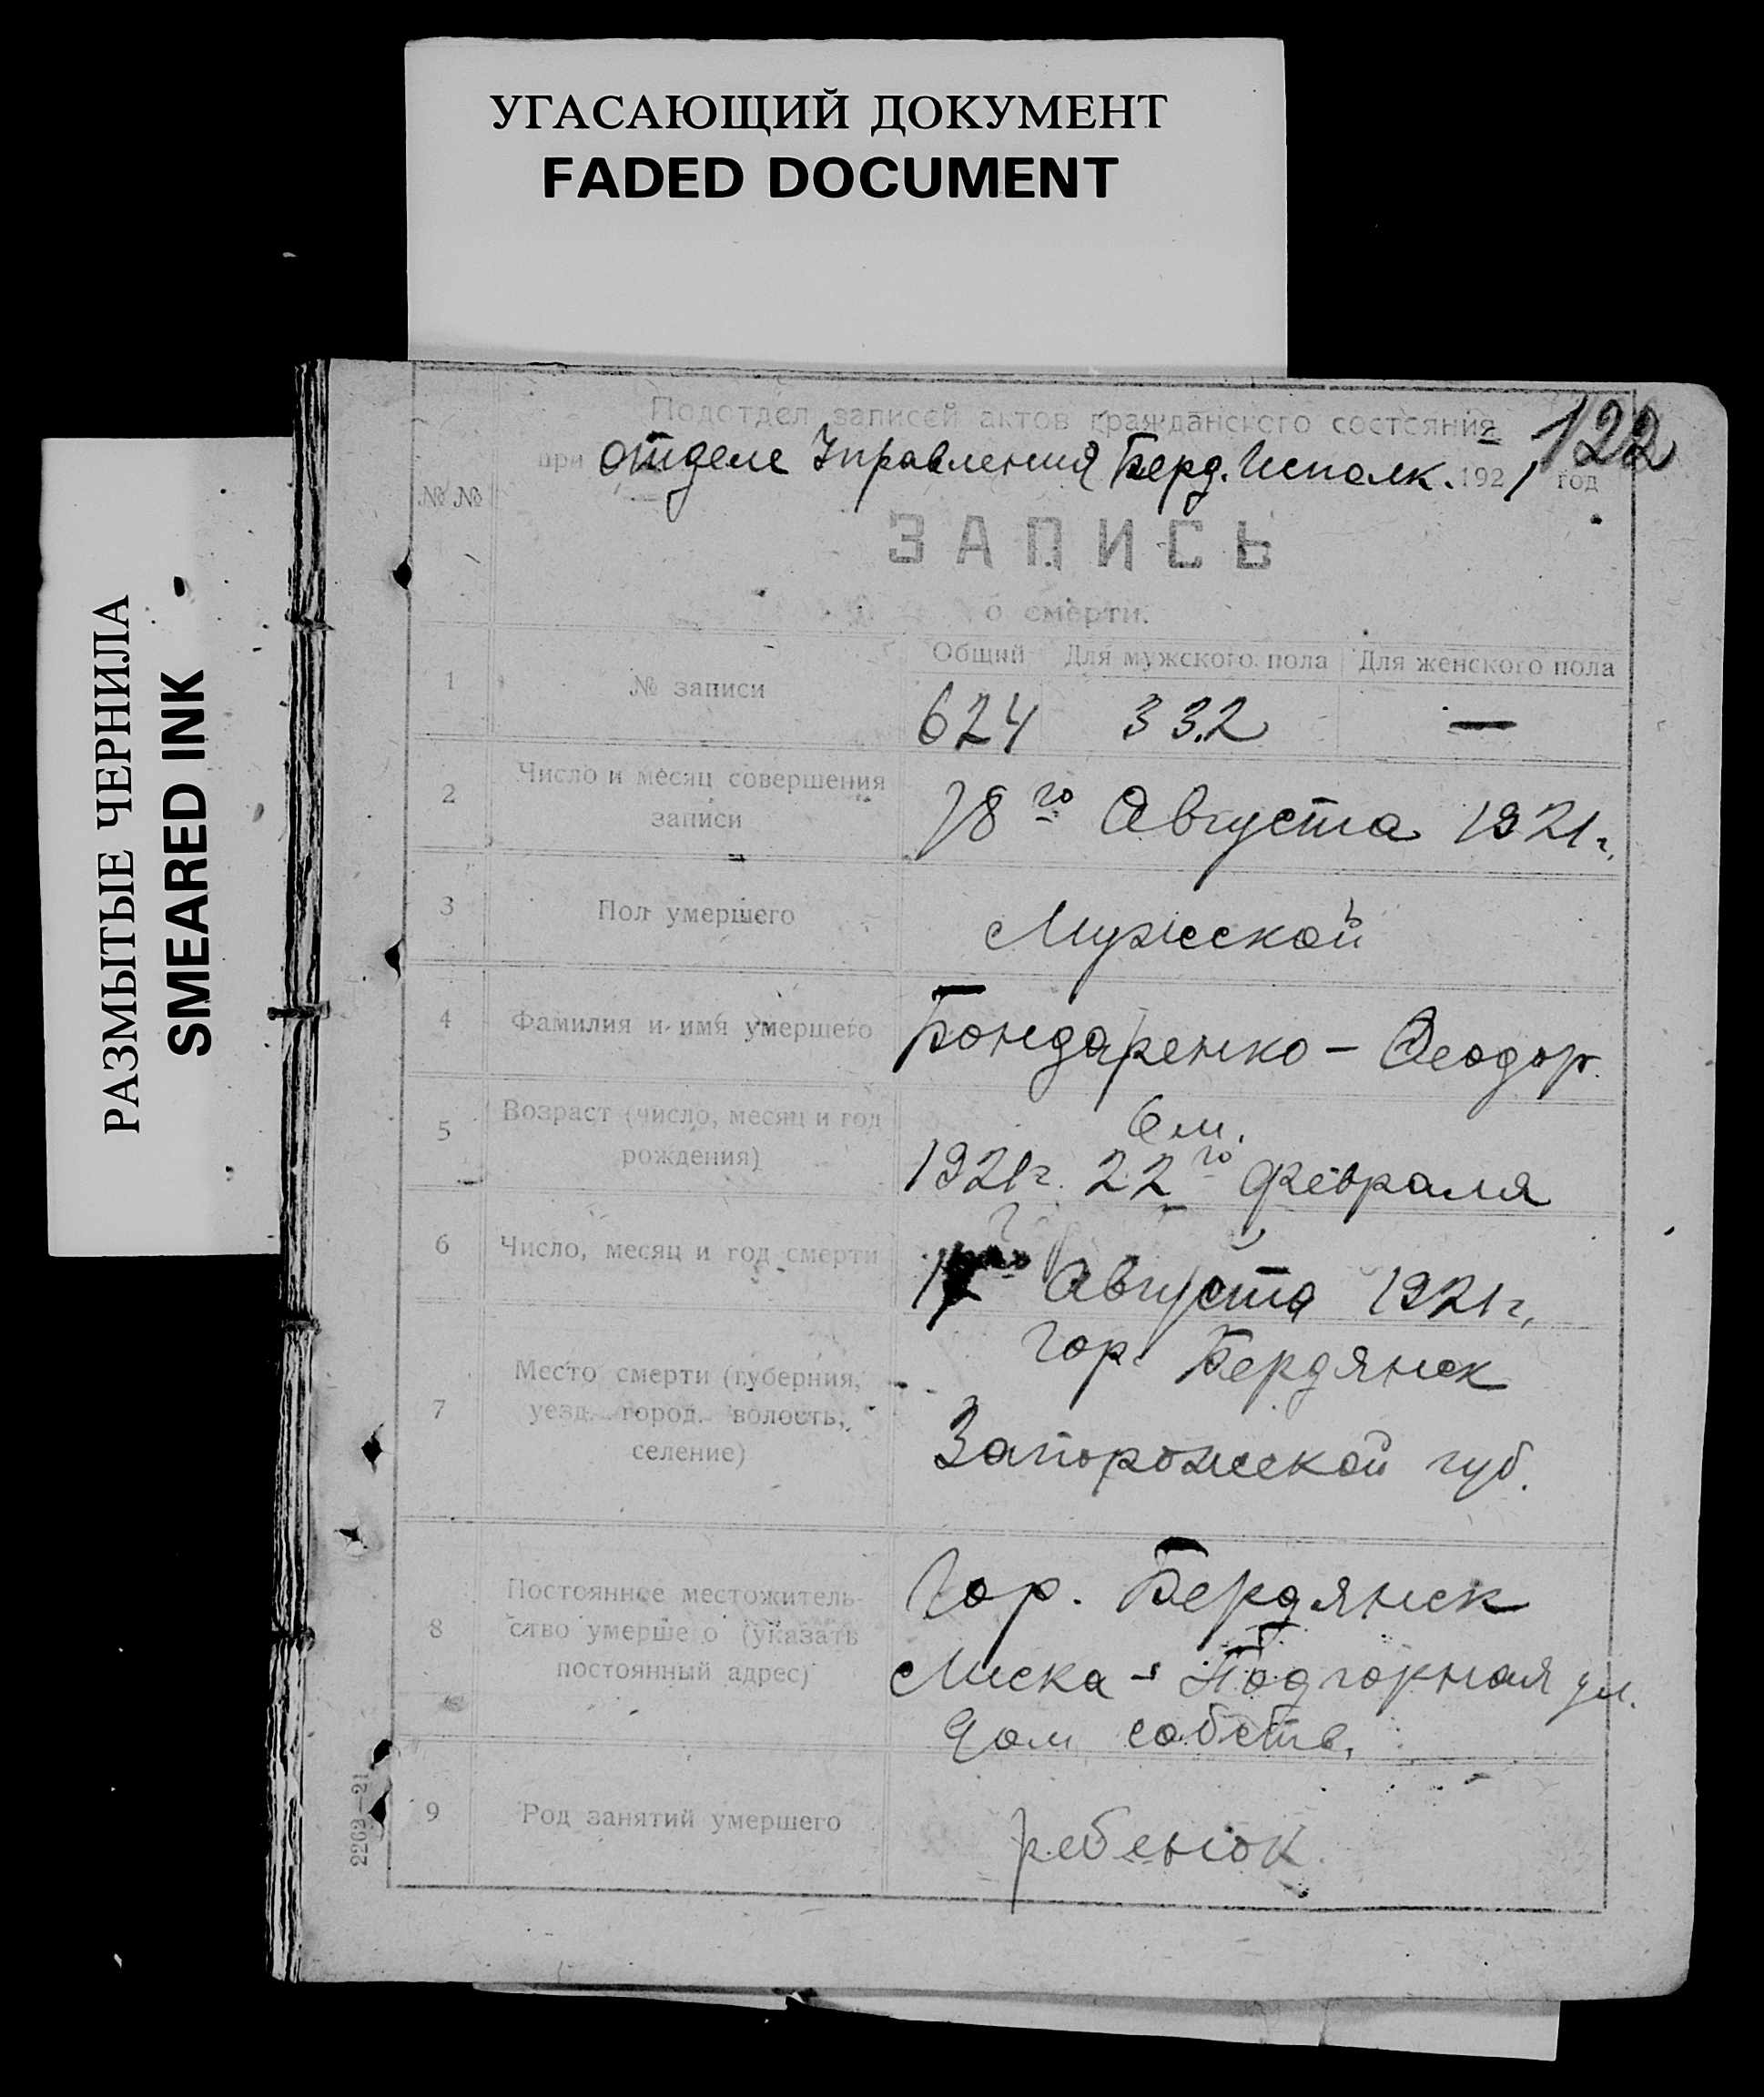 УГАСАЮЩИЙ ДОКУМЕНТ
FADED DOCUMENT
РАЗМЫТЫЕ ЧЕРНИЛА
SMEARED INK
122
Подотдел записей актов гражданского состояния
при отделе Управления Берд. Исполк. 1921 год
№ №
ЗАПИСЬ
о смерти.
Общий Для мужского пола Для женского пола
1 № записи 624 332 —
2 Число и месяц совершения
записи
18го Августа 1921 г.
3 Пол умершего Мужской
4 Фамилия и имя умершего Бондаренко – Феодор.
5 Возраст (число, месяц и год
рождения)
6 м.
1921 г. 22го февраля
6 Число, месяц и год смерти Августа 1921 г.
7 Место смерти (губерния,
уезд. город. волость,
селение)
Гор. Бердянск
Запорожской губ.
8 Постоянное местожитель-
ство умерше о (указать
постоянный адрес)
Гор. Бердянск
Лиска - Подгорная ул.
дом собств.
9 Род занятий умершего ребенок.
2263—21